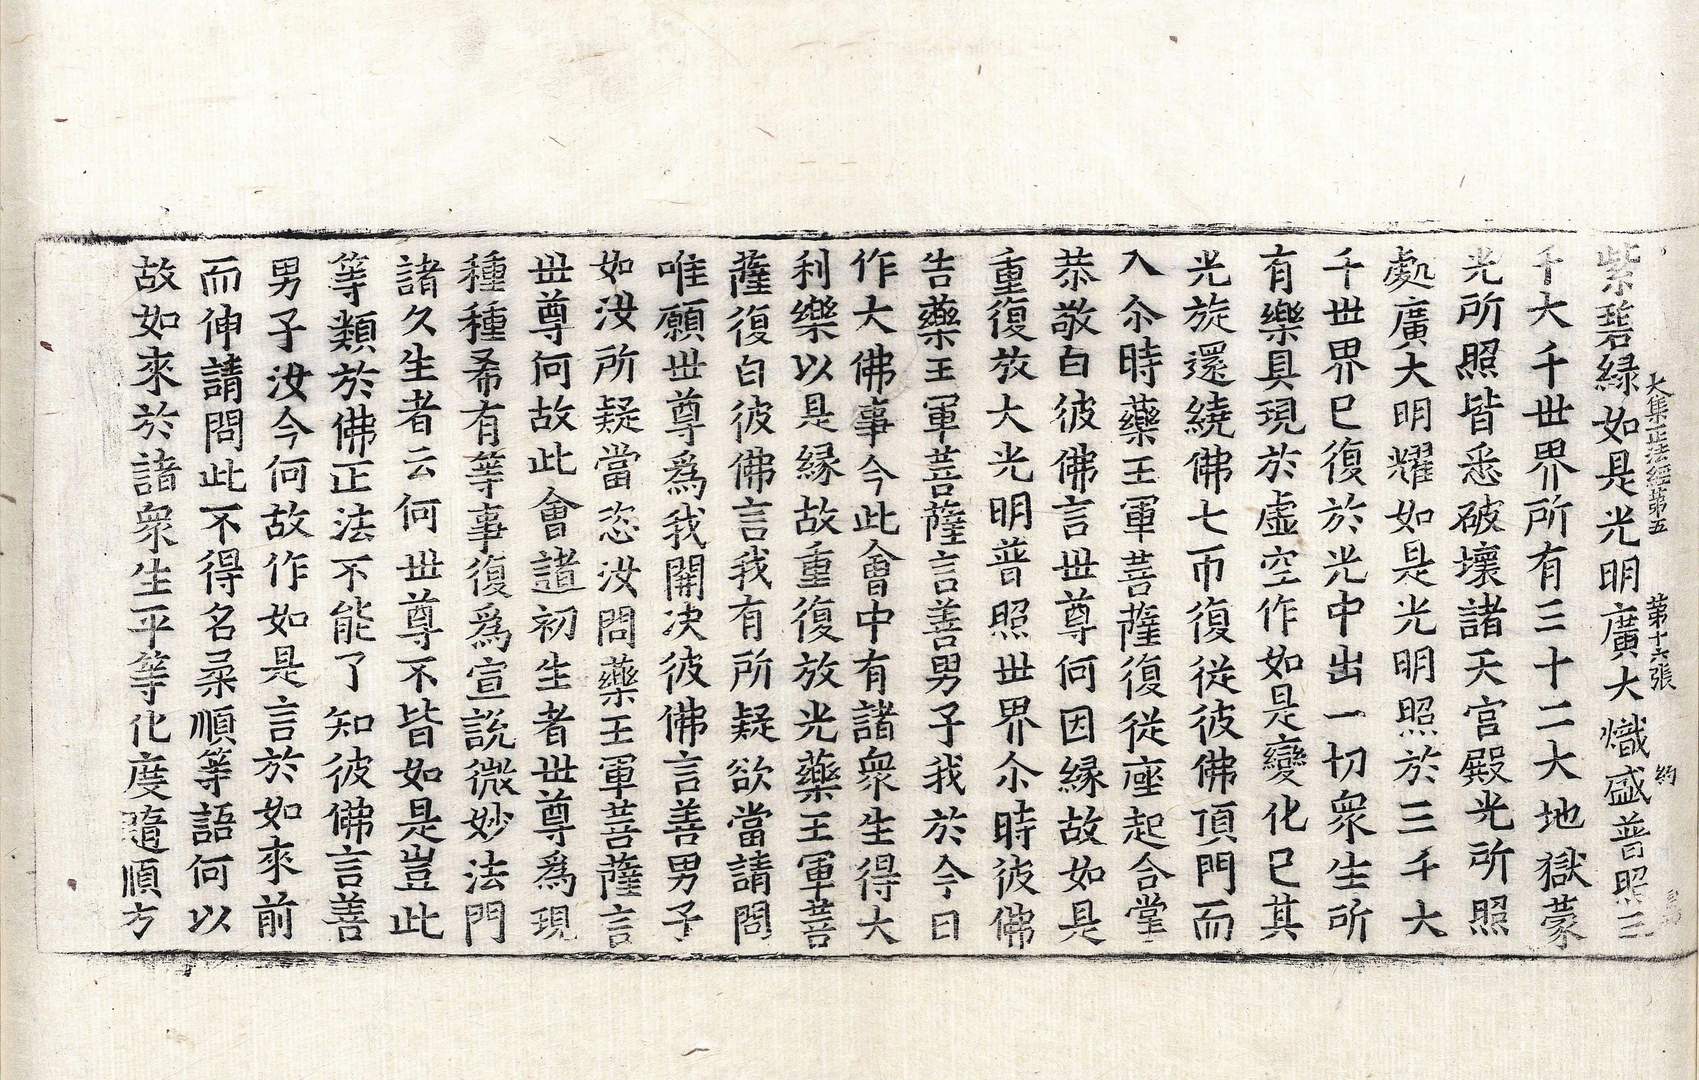 大集正法經第五　第十六張　約
紫碧緑如是光明廣大熾盛普照三
千大千世界所有三十二大地獄蒙
光所照皆悉破壞諸天宮殿光所照
處廣大明耀如是光明照於三千大
千世界巳復於光中出一切衆生所
有樂具現於虛空作如是變化巳其
光旋還繞佛七帀復從彼佛頂門而
入尒時藥王軍菩薩復從座起合掌
恭敬白彼佛言世尊何因緣故如是
重復放大光明普照世界尒時彼佛
告藥王軍菩薩言善男子我於今日
作大佛事今此會中有諸衆生得大
利樂以是緣故重復放光藥王軍菩
薩復白彼佛言我有所疑欲當請問
唯願世尊爲我開決彼佛言善男子
如汝所疑當恣汝問藥王軍菩薩言
世尊何故此會諸初生者世尊爲現
種種希有等事復爲宣說微妙法門
諸久生者云何世尊不皆如是豈此
等類於佛正法不能了知彼佛言善
男子汝今何故作如是言於如來前
而伸請問此不得名柔順等語何以
故如來於諸衆生平等化度隨順方